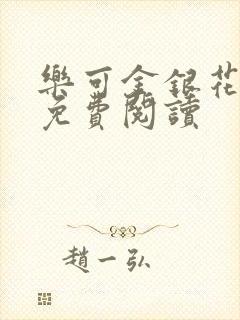 樂可金銀花
免費閱讀
趙一弘